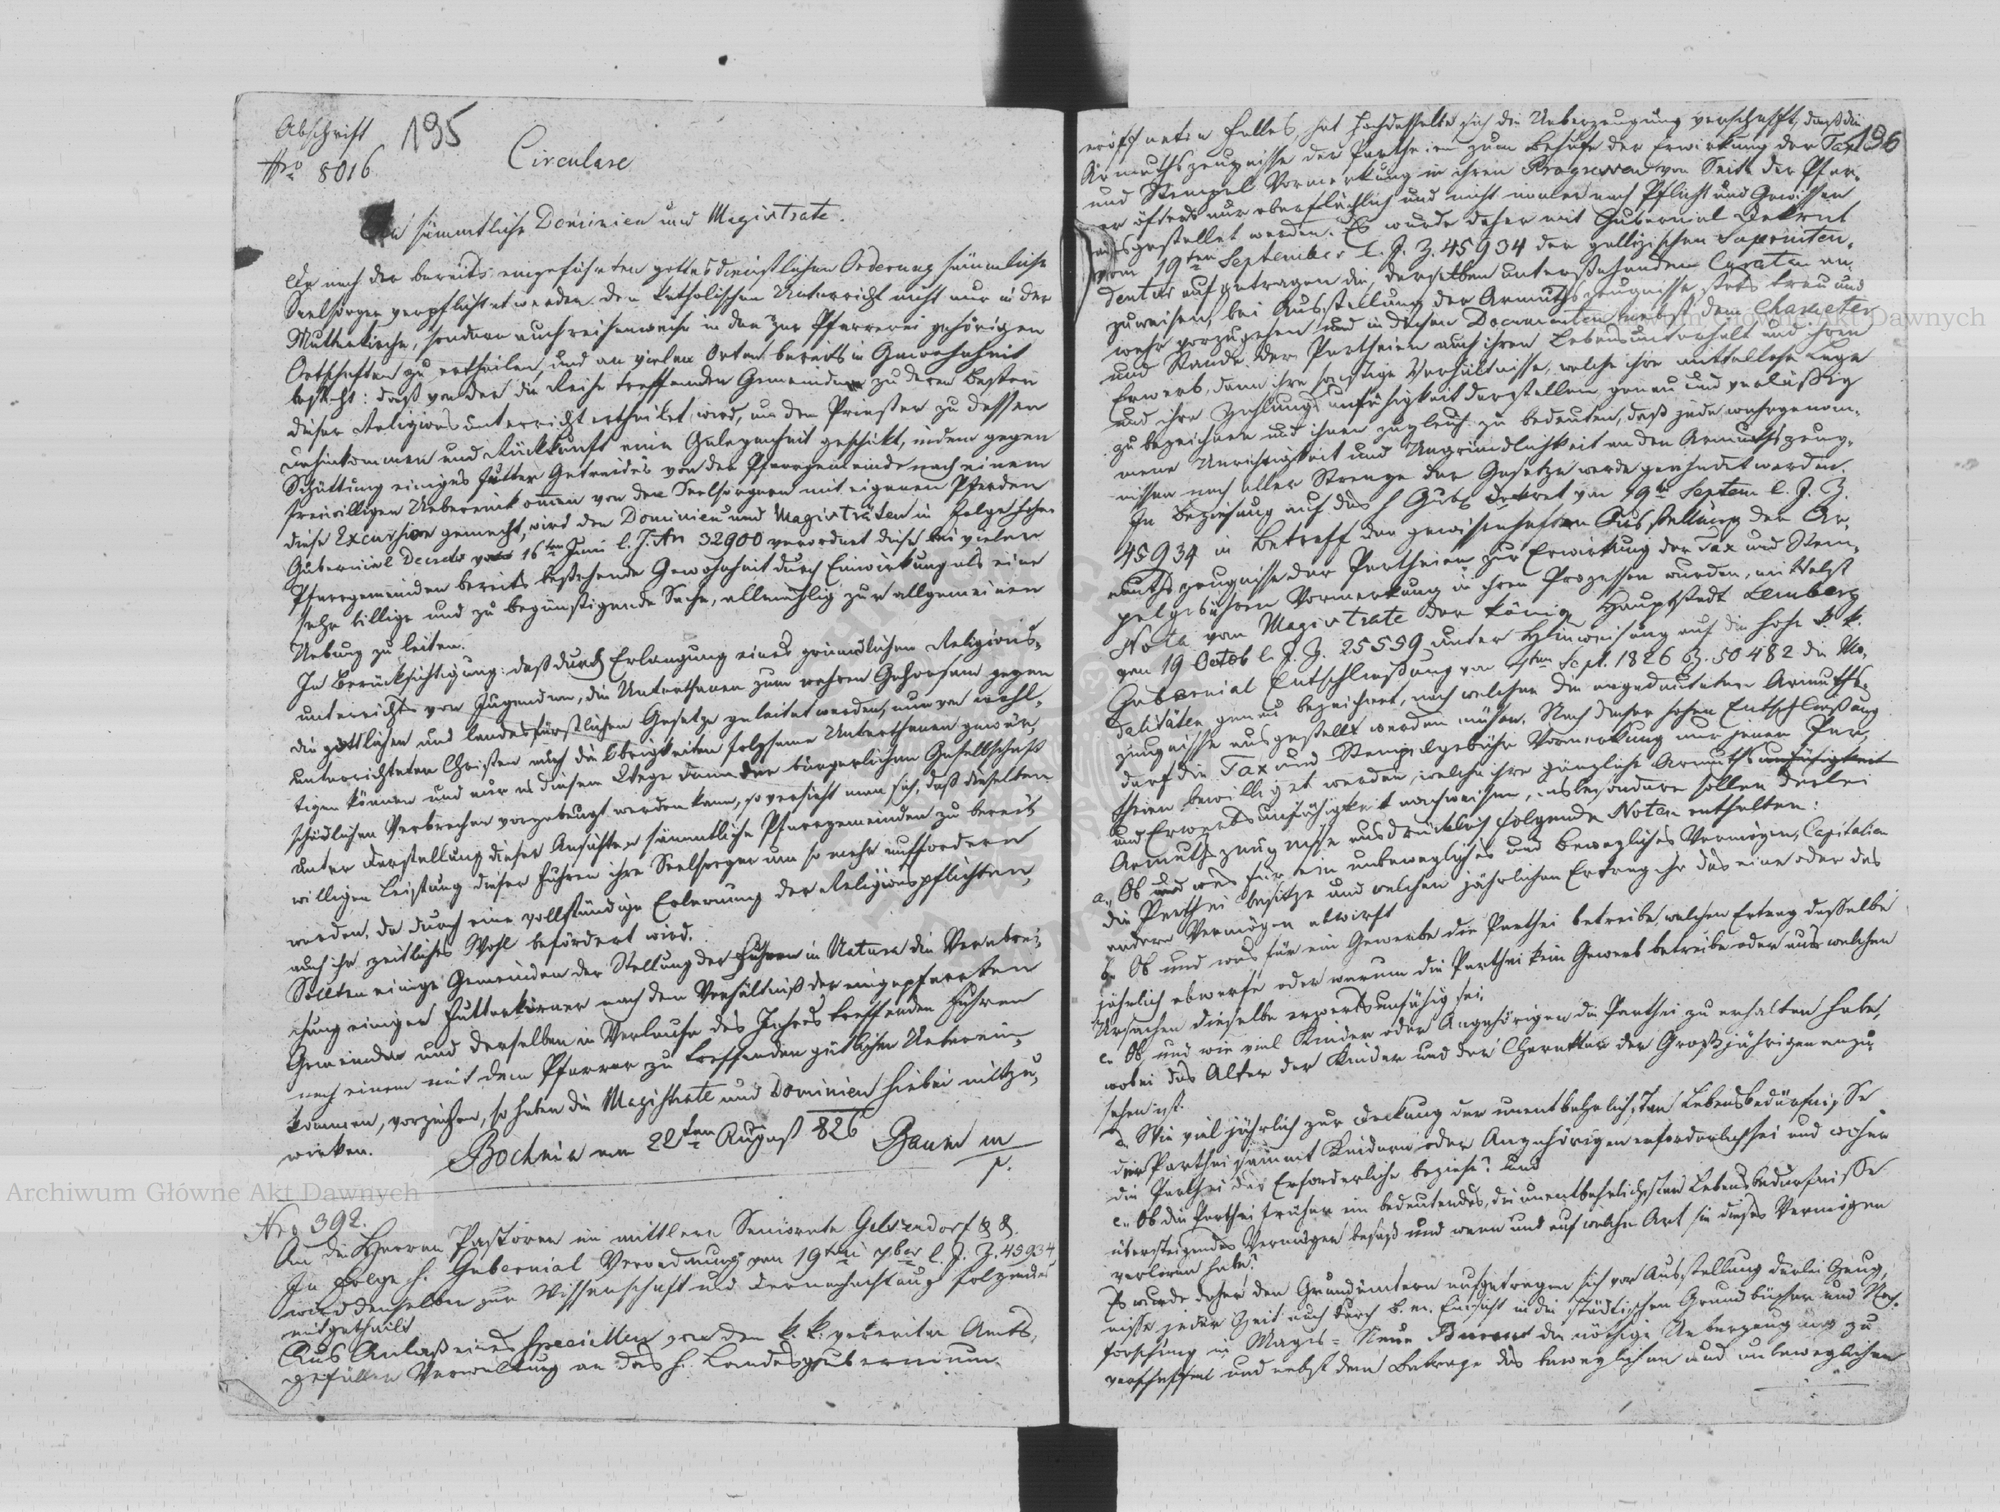 Abschrift
195
Nro 8016
Circulare
An sämmtliche Dominien und Magistrate.
Da nach der bereits eingeführten gottesdienstlichen Ordnung sämmtliche
Seelsorger verpflichtet werden den katholischen Unterricht nicht nur in der
Mutterkirche, sondern auch reihenweise in den zur Pfarrerei gehörigen
Ortschaften zu ertheilen, und an vielen Orten bereits in Gewohnheit
besteht: daß von der die Reihe treffenden Gemeinde zu deren Besten
dieser Religionsunterricht ertheilet wird, um den Priester zu dessen
Dahinkommen und Rückkunft eine Gelegenheit geschikt, indem gegen
Schüttung einiges Futter Getreides von der Pfarrgemeinde nach einem
freiwilligen Uebereinkommen von den Seelsorgern mit eigenen Pferden
diese Excursion gemacht, wird den Dominien und Magistraten in Folge hohen
Gubernial Decrets vom 16ten Juni l. J. An 32900 verordnet diese bei vielen
Pfarrgemeinden bereits bestehende Gewohnheit durch Einwirkung als eine
sehr billige und zu begünstigende Sache, allmählig zur allgemeinen
Uebung zu leiten.
In Berücksichtigung: daß durch Erlangung eines gründlichen Religions-
unterrichts von Jugend an, die Unterthanen zum wahren Gehorsam gegen
die göttlichen und landesfürstlichen Gesetze geleitet werden, nur von wohl-
unterrichteten Christen auch die Obrigkeiten folgsame Unterthanen gewär-
tigen können und nur in diesem Wege dann der bürgerlichen Gesellschaft
schädlichen Verbrechen vorgebeugt werden kann, so versieht man sich, daß dieselben
unter Darstellung dieser Ansichten sämmtliche Pfarrgemeinden zu bereit-
willigen Leistung dieser Fuhren ihre Seelsorger um so mehr auffordern
werden, da durch eine vollständige Erlernung der Religionspflichten,
auch ihr zeitliches Wohl befördert wird.
Sollten einige Gemeinden der Stellung der Fuhren in Natura die Verabrei-
chung einiger Futterkörner nach dem Verhältniß der eingepfarrten
Gemeinden und derselben im Verlaufe des Jahres treffenden Fuhren
nach einem mit dem Pfarrer zu treffenden gütlichen Ueberein-
kommen, vorziehen, so haben die Magistrate und Dominien hiebei mitzu-
wirken.
Bochnia am 22ten August 826 Baum m
p.
Nro 392.
An die Herren Pastoren im mittlern Seniorate Gelsendorf & &.
In Folge h. Gubernial Verordnung vom 19ten 7ber l. J. Z. 45934
wird denselben zur Wissenschaft und Darnachachtung folgendes
mitgetheilt
Aus Anlaß eines speciellen von der k. k. vereinten Amts-
gefällen Verwaltung an das h. Landesgubernium
196
eröffneten Falles, hat hochdasselbe sich die Ueberzeugung verschafft, daß die
Armuthszeugnisse der Partheien zum Behufe der Erwirkung der Tax
und Stempel Vormerkung in ihren Prozessen von Seite der Pfar-
rer öfters nur oberflächlich und nicht immer nach Pflicht und Gewissen
ausgestellet werden. Es wurde daher mit Gubernial Dekret
vom 19ten September l. J. Z. 45934 der gallizischen Superinten-
dentur aufgetragen die derselben unterstehenden Curaten an-
zuweisen, bei Ausstellung der Armuthszeugnisse stets treu und
wahr vorzugehen und in diesen Documenten nebst dem Charakter
und Stande der Partheien auch ihren Lebensunterhalt und ihren
Erwerb, dann ihre sonstige Verhältnisse, welche ihre mittellose Lage
und ihre Zahlungsunfähigkeit darstellen genau und verläßig
zu bezeichnen und ihnen zugleich zu bedeuten, daß jede wahrgenom-
mene Unrichtigkeit und Ungründlichkeit an den Armuthszeug-
nissen nach aller Strenge der Gesetze werde geahndet werden.
In Beziehung auf das h Gub Dekret vom 19ten Septem l. J. Z.
45934 in Betreff der gewissenhaften Ausstellung der Ar-
muthszeugnisse der Partheien zur Erwirkung der Tax und Stem-
pelgebühren Vormerkung in ihren Prozessen wurden, mittelst
Nota vom Magistrate der könig Hauptstadt Lemberg
vom 19 Octob l. J. Z. 25559 unter Hinweisung auf die hohe k. k.
Gubernial Entschließung vom 4ten Sept. 1826 Z. 50482 die Mo-
dalitäten genau bezeichnet, nach welchen die angedeuteten Armuths-
zeugnisse ausgestellt werden müßen. Nach dieser hohen Entschließung
darf die Tax und Stempelgebühr Vormerkung nur jenen Par-
theien bewilliget werden, welche ihre gänzliche Armuth
und Erwerbsunfähigkeit nachweisen, insbesondere sollen derlei
Armuthszeugnisse ausdrücklich folgende Noten enthalten:
a., Ob und was für ein unbewegliches und bewegliches Vermögen, Capitalien
die Parthei besitze und welchen jährlichen Ertrag ihr das eine oder das
andere Vermögen abwirft
b. Ob und was für ein Gewerbe die Parthei betreibe, welchen Ertrag dasselbe
jährlich abwerfe oder warum die Parthei kein Gewerb betreibe oder aus welchen
Ursachen dieselbe erwerbsunfähig sei,
c. Ob und wie viel Kinder oder Angehörigen die Parthei zu erhalten habe,
wobei das Alter der Kinder und der Charakter der Großjährigen anzu-
sehen ist.
d. Wie viel jährlich zur Deckung der unentbehrlichsten Lebensbedürfnisse
der Parthei sammt Kindern oder Angehörigen erforderlich sei und woher
die Parthei das Erforderliche beziehe? Und
e., Ob die Parthei früher ein bedeutendes, die unentbehrlichsten Lebensbedürfnisse
übersteigendes Vermögen besaß und wann und auf welche Art sie dieses Vermögen
verloren habe?
Es wurde daher den Grundämtern aufgetragen sich vor Ausstellung derlei Zeug-
nisse jeder Zeit auch durch Einsicht in die städtischen Grundbücher und Nach-
forschung in Magis- Steuer Bureau die nöthige Ueberzeugung zu
verschaffen und nebst dem Betrage des beweglichen und unbeweglichen
Archiwum Główne Akt Dawnych
Archiwum Główne Akt Dawnych